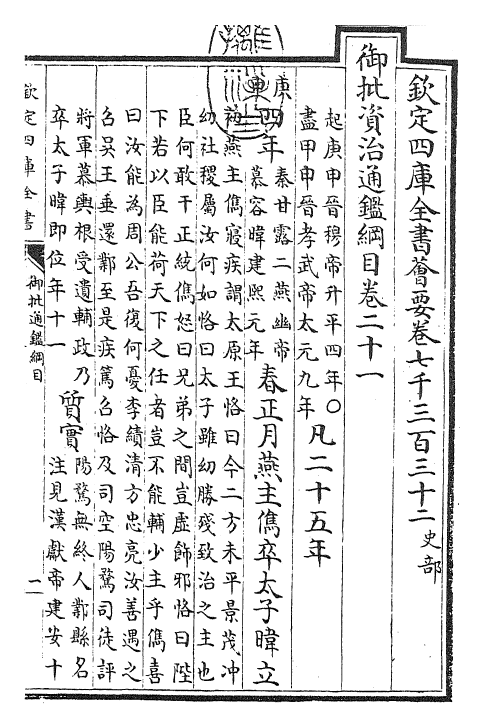 欽定四庫全書薈要卷七千三百三十二 史部
御批資治通鑑綱目卷二十一
起庚申晉穆帝升平四年○
盡甲申晉孝武帝太元九年
凡二十五年
庚
四年
秦甘露二燕幽帝
慕容暐建熙元年
春正月燕主儁卒太子暐立
初燕主儁寢疾謂太原王恪曰今二方未平景茂冲
幼社稷屬汝何如恪曰太子雖幼勝殘致治之主也
臣何敢干正統儁怒曰兄弟之間豈虛飾邪恪曰陛
下若以臣能荷天下之任者豈不能輔少主乎儁喜
曰汝能為周公吾復何憂李績清方忠亮汝善遇之
召吳王垂還鄴至是疾篤召恪及司空陽騖司徒評
將軍慕輿根受遺輔政乃
卒太子暐即位年十一
質實
陽騖無終人鄴縣名
注見漢獻帝建安十
欽定四庫全書
御批通鑑綱目
二